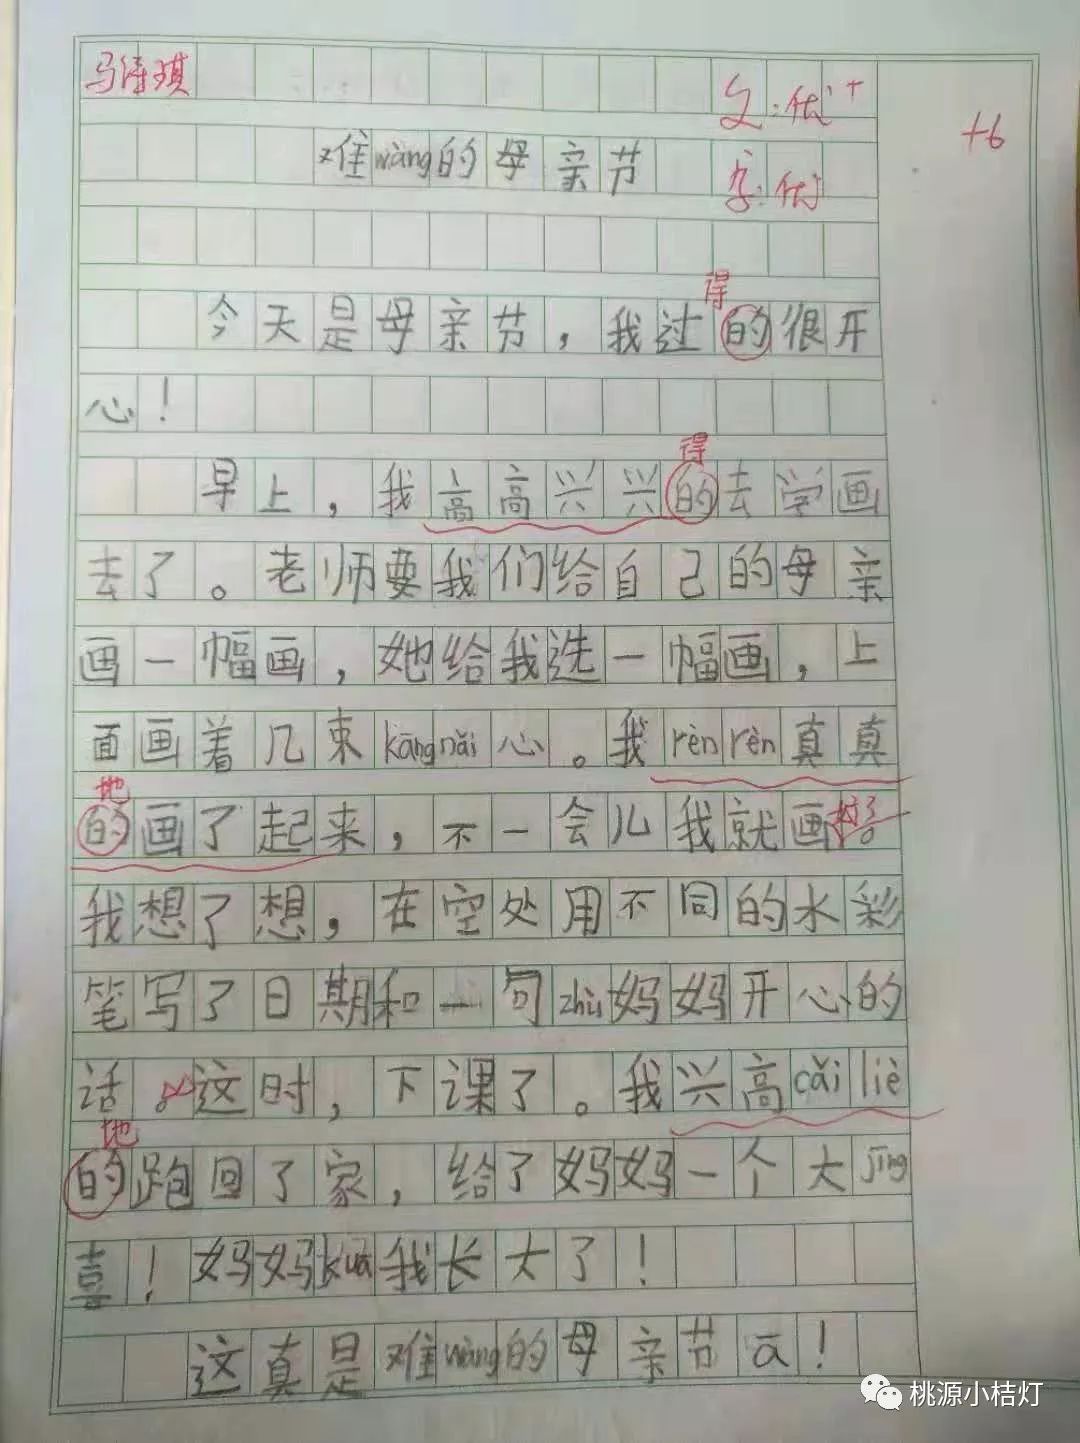 马诗琪
文:优+
+6
难wàng的母亲节
字:优
得
今天是母亲节，我过的很开
心！
得
早上，我高高兴兴的去学画
去了。老师要我们给自己的母亲
画一幅画，她给我选一幅画，上
面画着几束kāngnǎi心。我rènrèn真真
地
的画了起来，不一会儿我就画好了。
我想了想，在空处用不同的水彩
笔写了日期和一句zhù妈妈开心的
话。这时，下课了。我兴高cǎi liè
地
的跑回了家，给了妈妈一个大jīng
喜！妈妈kuā我长大了！
这真是难wàng的母亲节ā！
桃源小桔灯